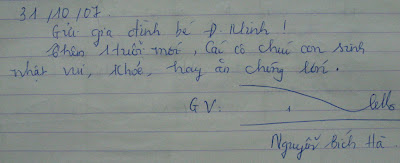 31/10/07.
Gửi gia đình bé Đ. Minh!
Thêm 1 tuổi mới, Các cô chúc con sinh
nhật vui, khoẻ, hay ăn chóng lớn.
GV:
Nguyễn Bích Hà.